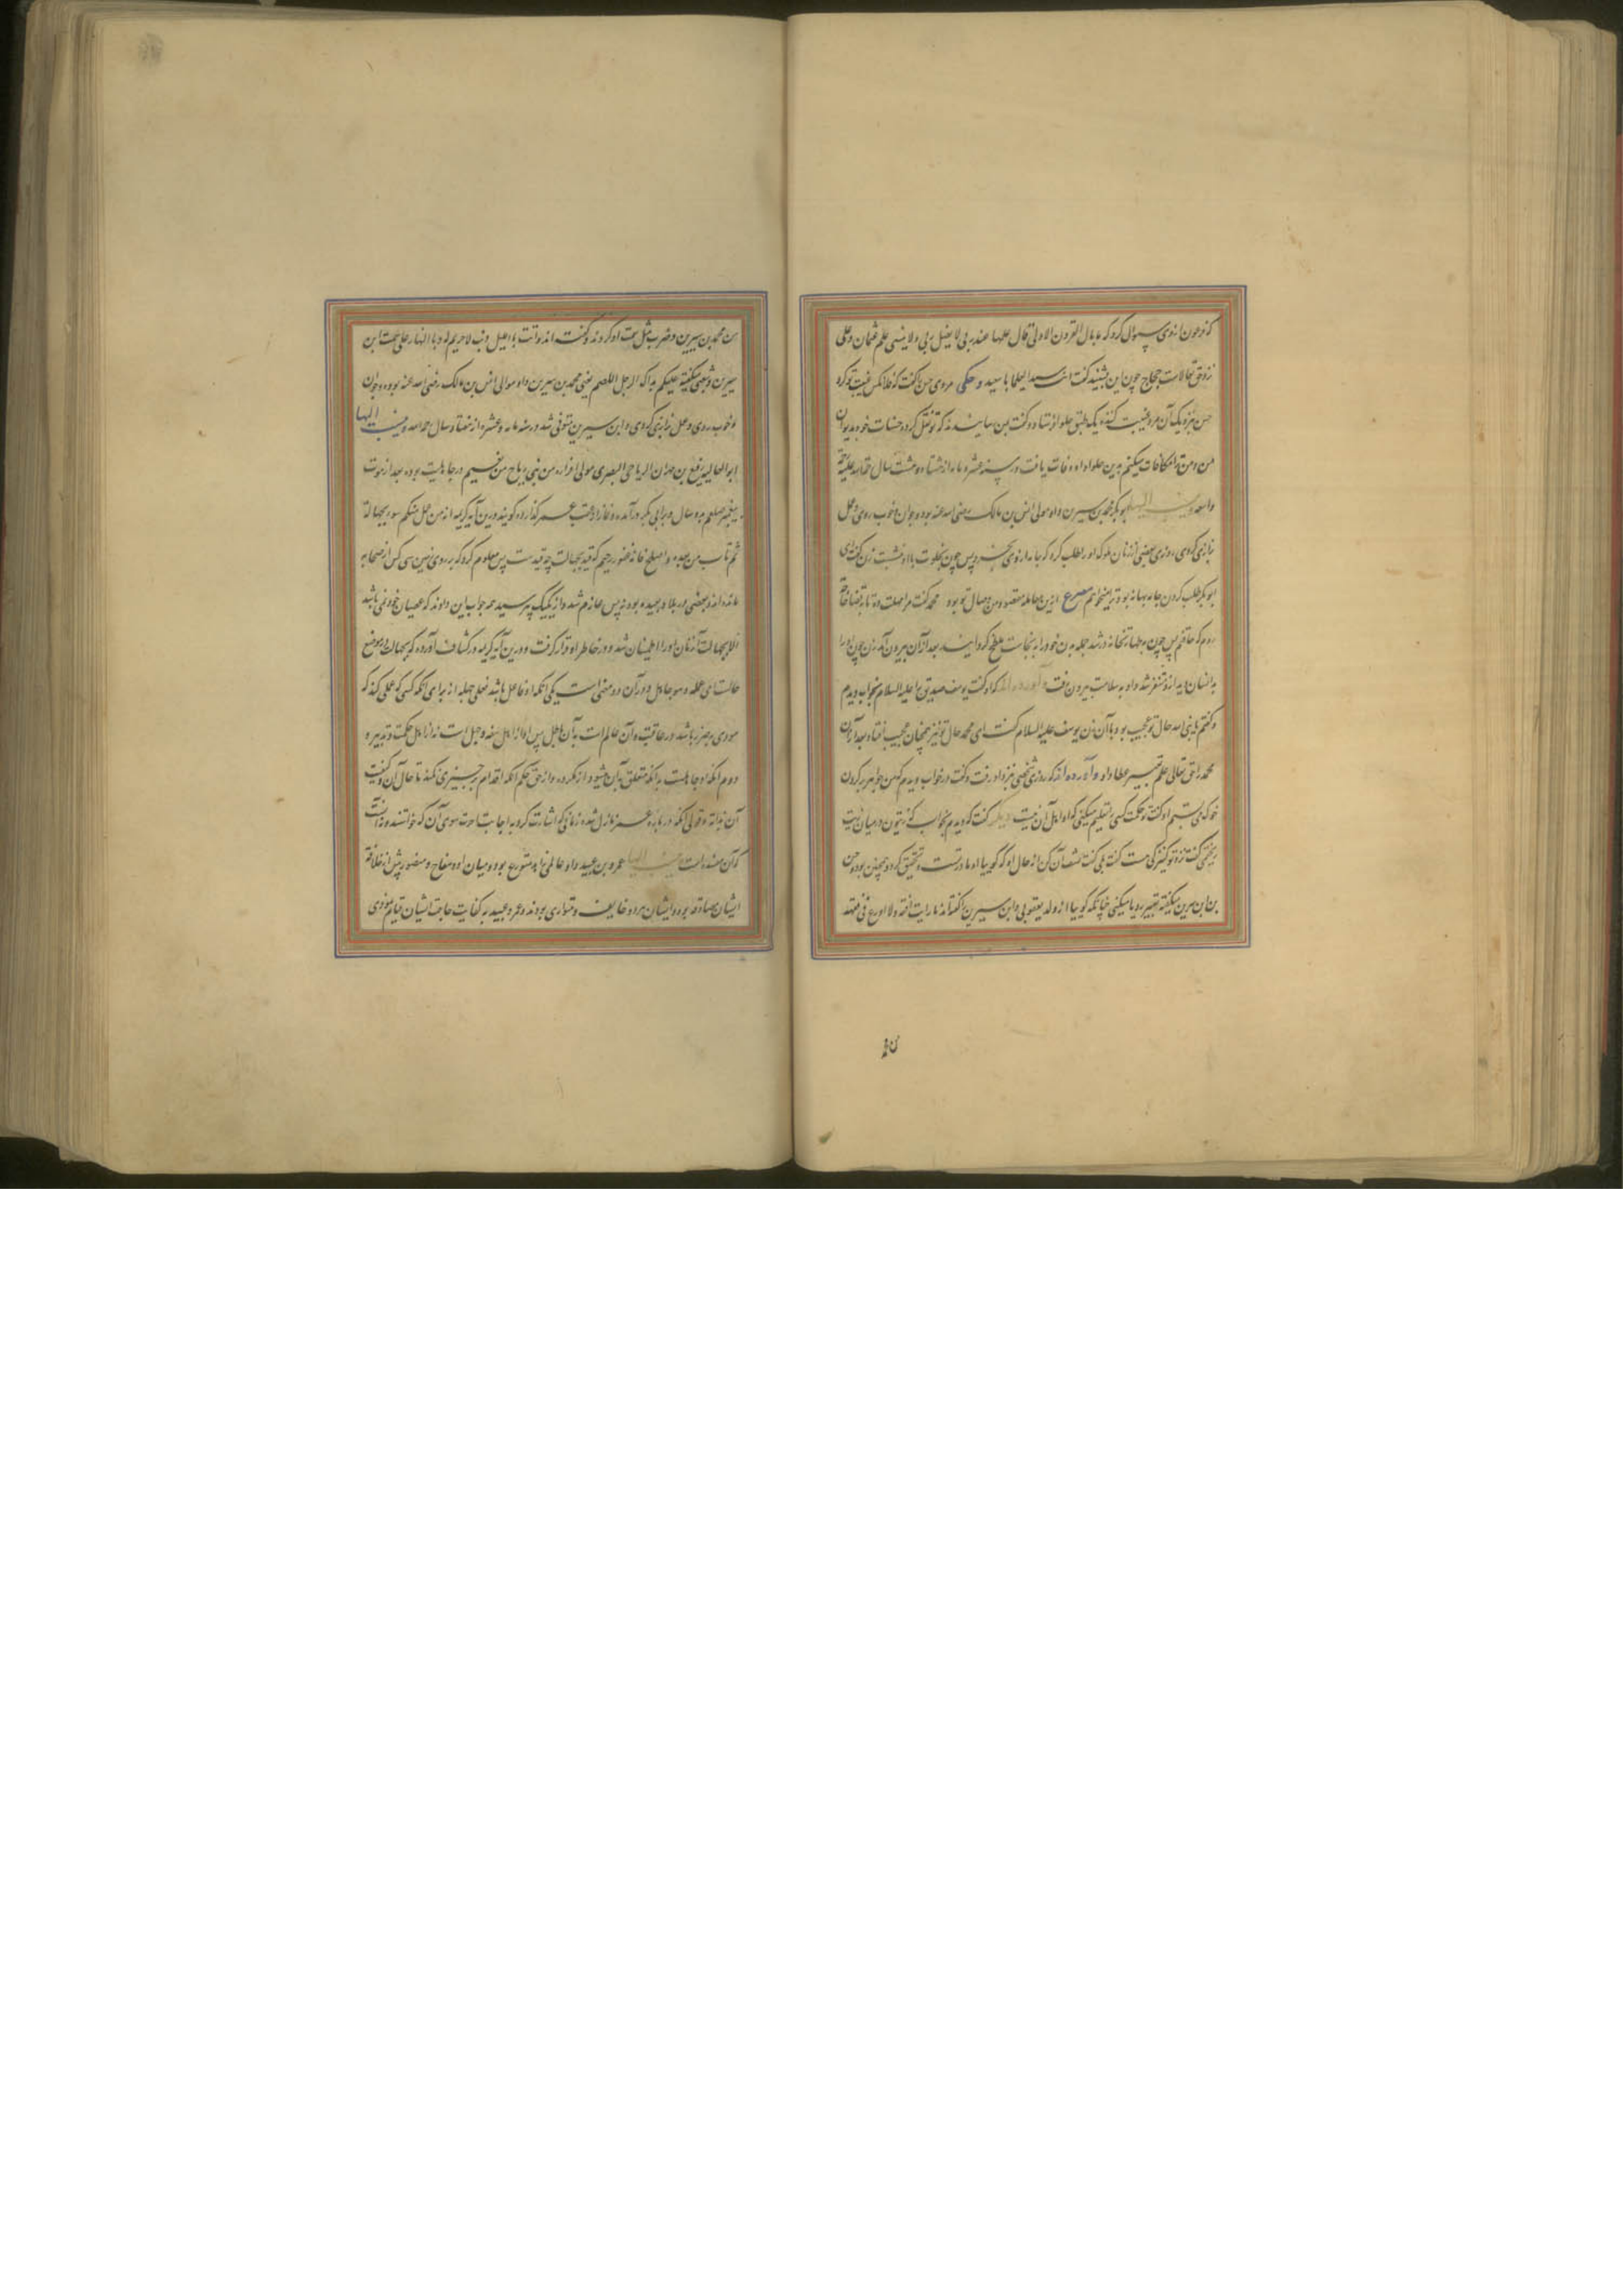 که فرعون از وی سؤال کرد که ما بال القرون الاولی قال علمها عند ربی لا یضل ربی و لا ینسی علم عثمان و علی
نزد حق تعالاست حجاج چون این بشنید گفت انت سید العلما یا با سعید و حکی مردی حسن را گفت که فلان کس غیبت تو کرد
حسن نزدیک آن مرد غیبت کننده یک طبق حلوا فرستاد و گفت بمن رسانیدند که تو نقل کرده حسنات خود بدیوان
من و من ترا مکافات میکنم بدین حلوا و او وفات یافت در سنه عشر و مایه از هشتاد و هشت سال رحمة الله علیه
واسعه و منسب الیها ابوبکر محمد بن سیرین و او مولی انس بن مالک رضی الله عنه بود و جوان خوب روی و عمل
بزازی کردی روزی بعضی از زنان ملوک او را طلب کرد که جامه از وی بخرد پس چون بخلوت با او نشست زن گفت ای
ابوبکر طلب کردن جامه بهانه بود ترا میخواهم مصرع ازین معامله مقصود من وصال تو بود محمد گفت مرا مهلت ده تا بقضا حاجة
روم که حاقنم پس چون بطهارتخانه در شد جمله بدن خود را به نجاست ملطخ گردانید بعد از آن بیرون آمد زن چون او را
بدانسان دید از و متنفر شد و او به سلامت بیرون رفت و آورده اند که او گفت یوسف صدیق را علیه السلام بخواب دیدم
و گفتم یا نبی الله حال تو عجیب بود با آن زن یوسف علیه السلام گفت ای محمد حال تو نیز همچنان عجیب افتاد و بعد از آن
محمد را حق تعالی علم تعبیر عطا داد و آورده اند که روزی شخصی نزد او رفت و گفت در خواب دیدم که من جواهر بر گردن
خوک می بستم او گفت تو حکمت کسی را تعلیم میکنی که او اهل آن نیست و دیگر گفت که دیدم بخواب که زیتون در میان زیت
ریختمی گفت نزد تو کنیزکی هست گفت بلی گفت کشف آن کن از حال او که گوییا او مادر تست و تحقیق کرد و همچنین بود حسن
بن ابن سیرین میگفته تعبیر رویا میکنی چنانکه گوییا از ولد یعقوبی و ابن سیرین را گفته اند ما رایت افقه و لا اورع فی فقهه
من محمد
من محمد بن سیرین و ضرب مثل بمت او کردند و گفته اند وانت باللیل ذئب لا حریم له و بالنهار علی سمت ابن
سیرین و شعبی میگفته علیکم بذاک الرجل الاصم یعنی محمد بن سیرین و او موالی انس بن مالک رضی الله عنه بوده و جوان
خوب روی و عمل بزازی کردی و ابن سیرین متوفی شد در سنه مایه و عشره از هفتاد سال رحمه الله و منسب الیها
ابو العالیه رفیع بن مهران الریاحی البصری مولی من بنی ریاح من تمیم در جاهلیت بوده بعد از موت
پیغمبر صلعم بدو سال و بر ابی بکر در آمده و نماز در عقب عمر گذارده گویند درین آیه کریمه انه من عمل منکم سوء بجهالة
ثم تاب من بعده و اصلح فانه غفور رحیم که قید بجهالت چه قیدست پس معلوم کرد که بر روی زمین سی کس از صحابه
مانده اند و بعضی در بلاد بعیده بودند پس عازم شد و از یکیک پرسید همه جواب این دادند که عصیان خود نمی باشد
الا بجهالت آنزمان او را اطمینان شد و در خاطر او قرار گرفت و درین آیه کریمه در کشاف آورده که بجهالت در موضع
حالست ای عمله و هو جاهل و در آن دو معنی است یکی آنکه او فاعل باشد فعلی جهله از برای آنکه کسی که عملی کند که
مودی بضرر باشد در عاقبت و آن عالم است بآن جاهل پس او از اهل سفه و جهل است نه از اهل حکمت و تدبیر و
دوم آنکه او جاهلست بدانکه متعلق بآن میشود از مکروه و از حق حکیم آنکه اقدام بر چیزی نکند تا حال آن و کیفیت
آن بداند و قولی آنکه در باره عمر نازل شده زمانی که اشارت کرد به اجابت
که آن مفسده است و منسب الیها عمرو بن عبید و او عالمی زاهد متورع بود و میان او و سفاح و منصور پیش از خلافت
ایشان صداقت بود و ایشان هر دو خایف و متواری بودند و عمرو عبید به کفایت حاجت ایشان قیام نمودی